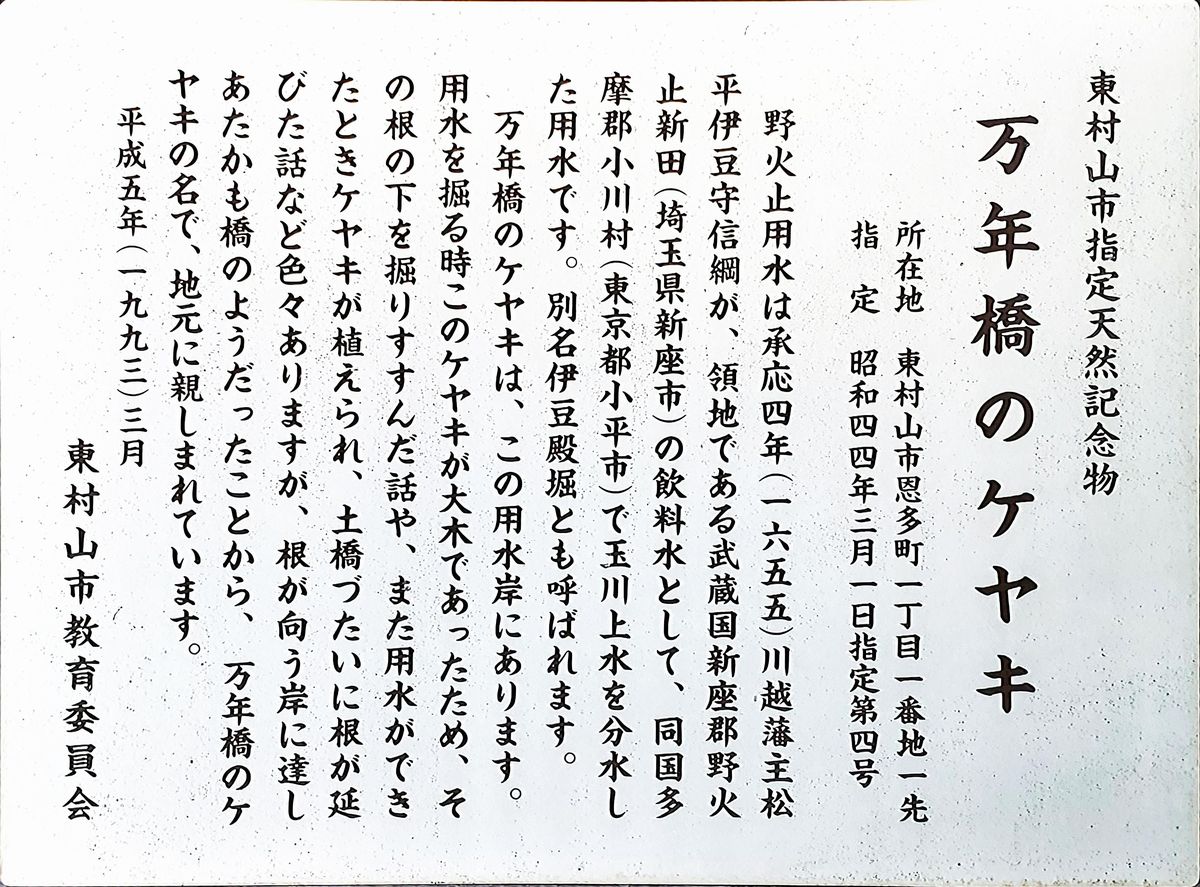 東村山市指定天然記念物
万年橋のケヤキ
所在地　東村山市恩多町一丁目一番地一先
指　定　昭和四四年三月一日指定第四号
野火止用水は承応四年(一六五五)川越藩主松
平伊豆守信綱が、領地である武蔵国新座郡野火
止新田(埼玉県新座市)の飲料水として、同国多
摩郡小川村(東京都小平市)で玉川上水を分水し
た用水です。別名伊豆殿堀とも呼ばれます。
万年橋のケヤキは、この用水岸にあります。
用水を掘る時このケヤキが大木であったため、そ
の根の下を掘りすすんだ話や、また用水ができ
たときケヤキが植えられ、土橋づたいに根が延
びた話など色々ありますが、根が向う岸に達し
あたかも橋のようだったことから、万年橋のケ
ヤキの名で、地元に親しまれています。
平成五年(一九九三)三月
東村山市教育委員会